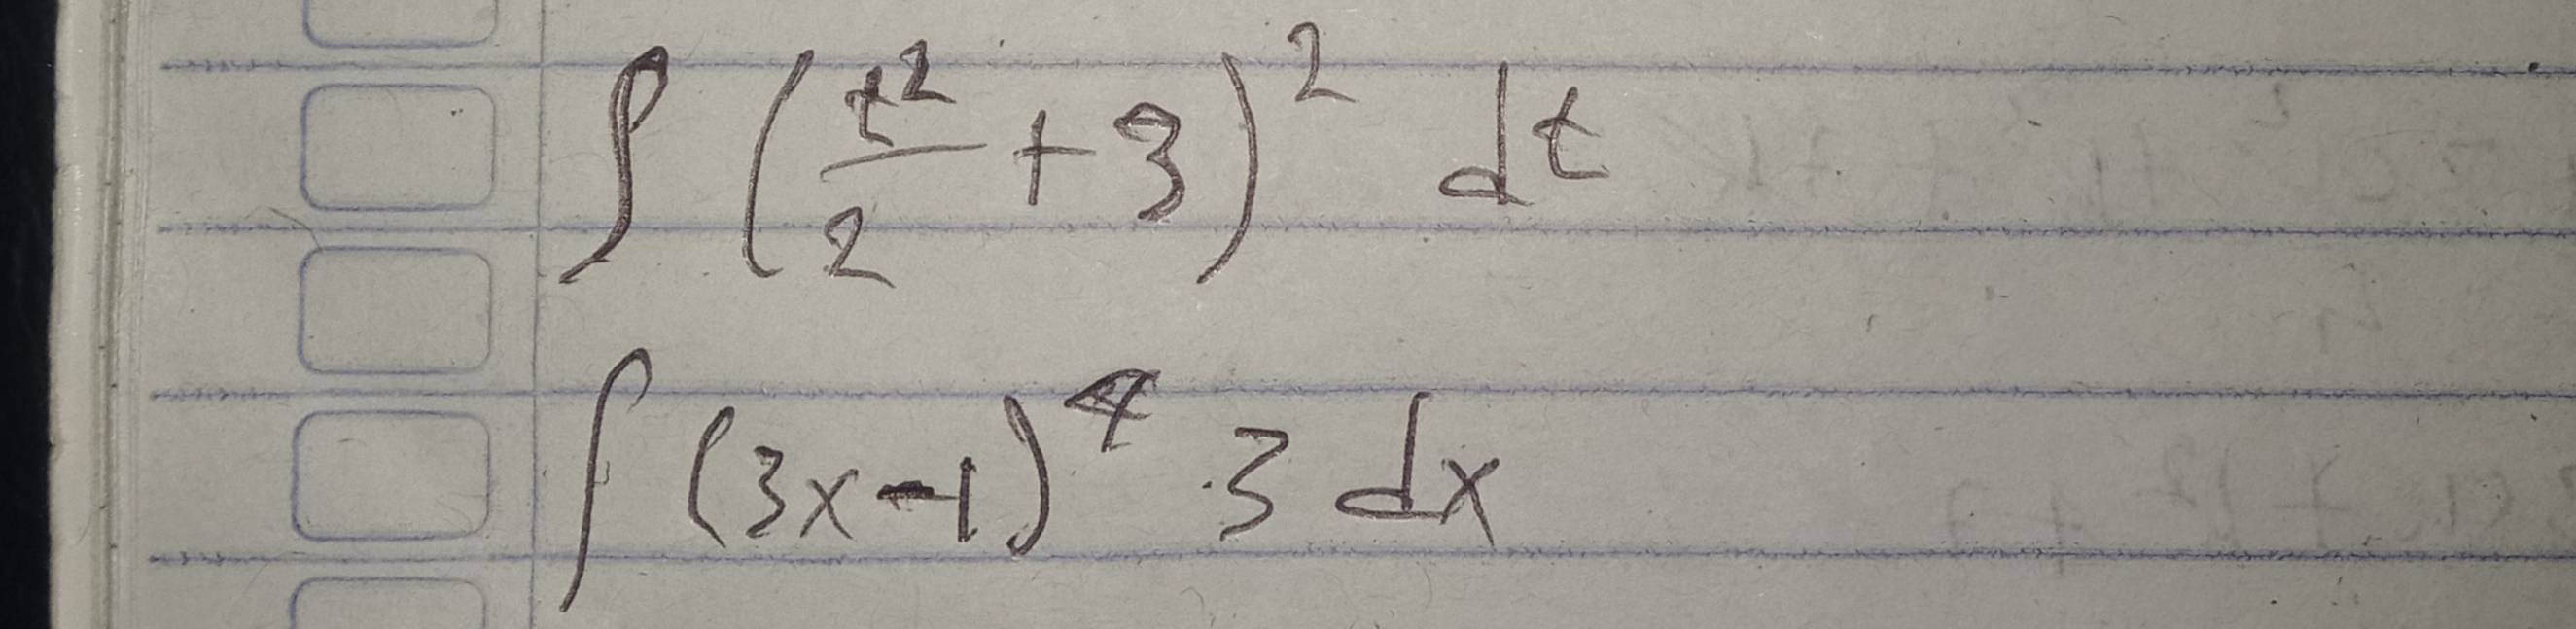 ∫ (t²/2 + 3)² dt
∫ (3x-1)⁴ 3 dx